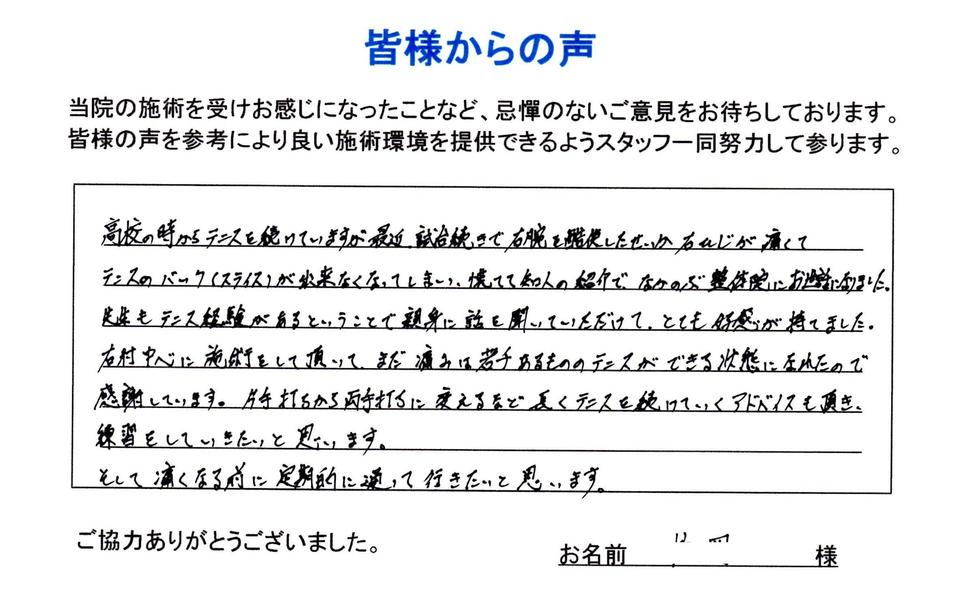 皆様からの声
当院の施術を受けお感じになったことなど、忌憚のないご意見をお待ちしております。
皆様の声を参考により良い施術環境を提供できるようスタッフ一同努力して参ります。
高校の時からテニスを続けていますが最近、試合続きで右腕を酷使したせいか右ひじが痛くて
テニスのバック(スライス)が出来なくなってしまい、慌てて知人の紹介でなかのぶ整体院にお世話になりました。
先生もテニス経験があるということで親身に話を聞いていただけて、とても好感が持てました。
右肘中心に施術をして頂いて、まだ痛みは若干あるもののテニスができる状態になれたので
感謝しています。片手打ちから両手打ちに変えるなど長くテニスを続けていくアドバイスも頂き、
練習をしていきたいと思います。
そして痛くなる前に定期的に通って行きたいと思います。
ご協力ありがとうございました。
お名前 様